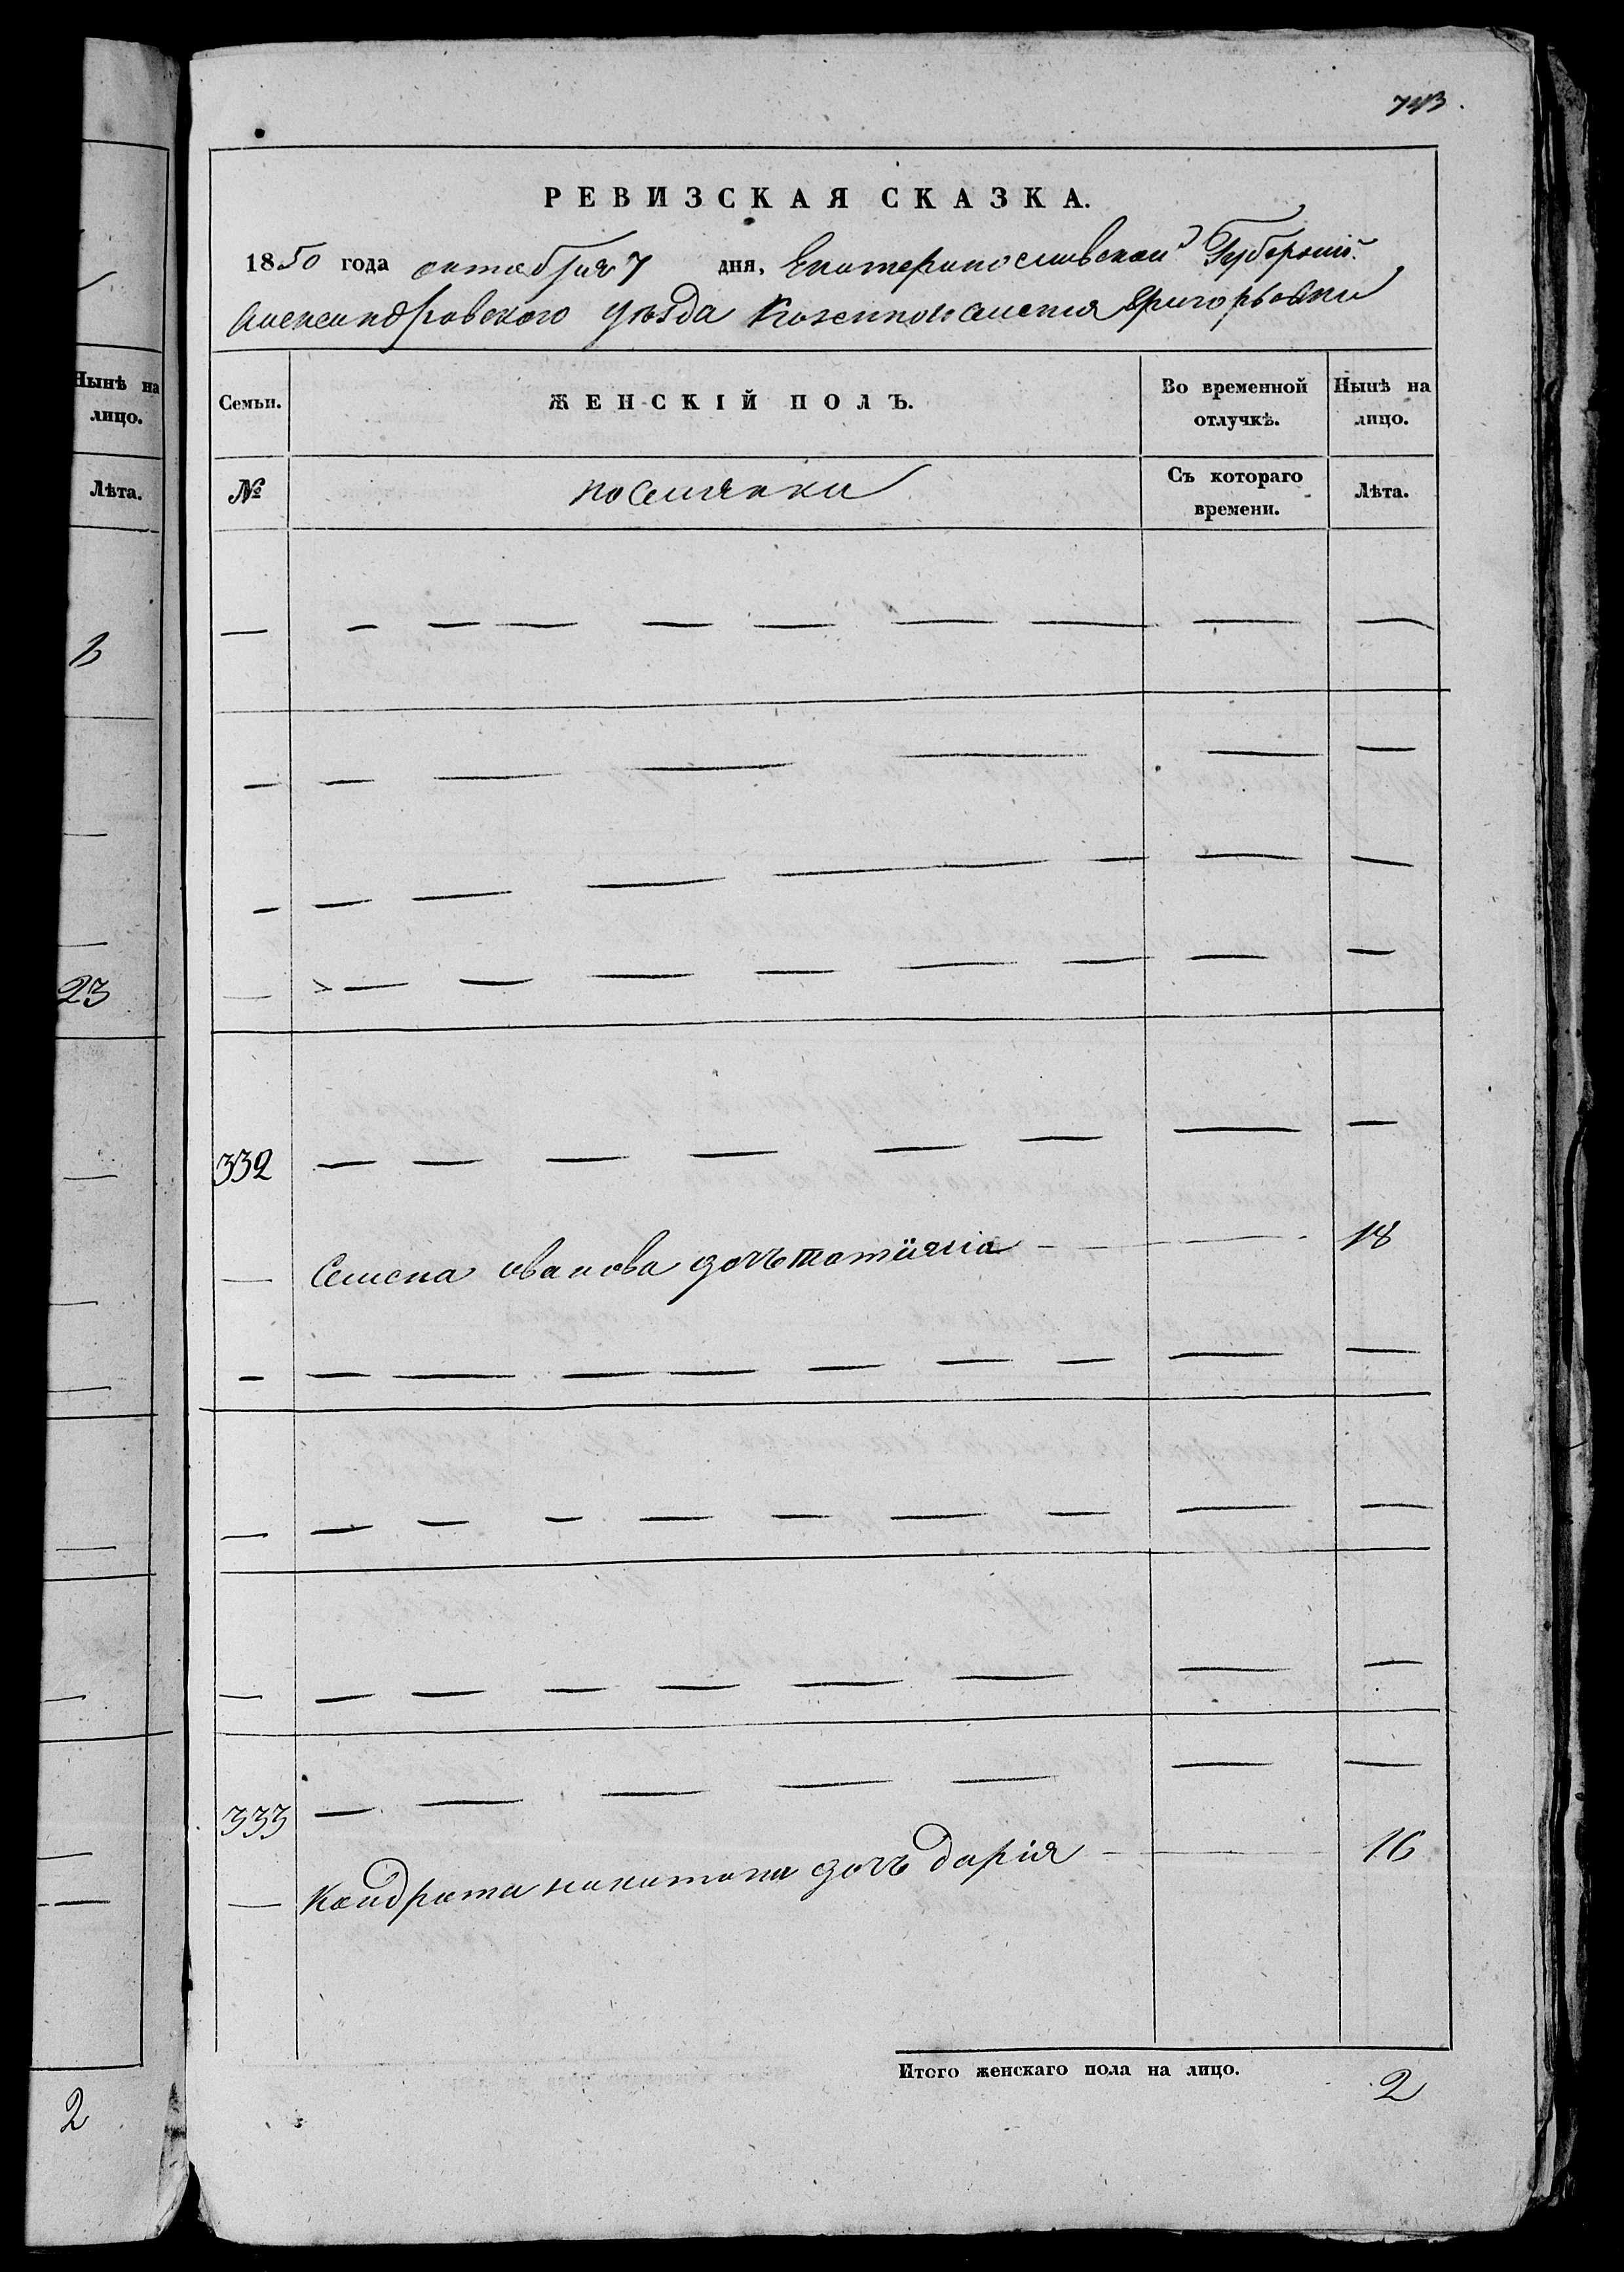 743.
РЕВИЗСКАЯ СКАЗКА.
1850 года октября 7 дня, Екатеринославской Губернии
Александровского уѣзда Григорьевки
Нынѣ на лицо.
Лѣта.
23
2
Семьи. ЖЕНСКІЙ ПОЛЪ. Во временной отлучкѣ. Нынѣ на лицо.
№ поселянки Съ котораго времени. Лѣта.
— — — — — — — — — —
— — — — — — —
— — — — — — — —
— — — — — — — — —
332 — — — — — — —
— Семена иванова дочь татіяна — — — 18
— — — — — — — — — —
— — — — — — — — — —
— — — — — — — — —
333 — — — — — — —
— Кондрата никитина дочь дарія — — 16
Итого женскаго пола на лицо. 2